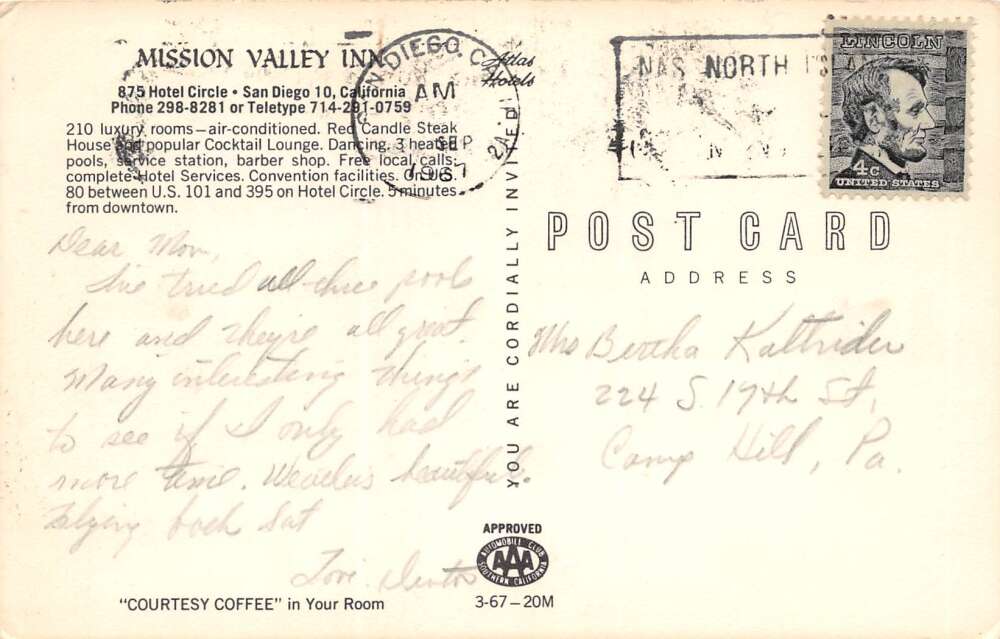 MISSION VALLEY INN
Atlas
Hotels
875 Hotel Circle • San Diego 10, California
Phone 298-8281 or Teletype 714-291-0759
210 luxury rooms—air-conditioned. Red Candle Steak
House and popular Cocktail Lounge. Dancing, 3 heated
pools, service station, barber shop. Free local calls;
complete Hotel Services. Convention facilities. On U.S.
80 between U.S. 101 and 395 on Hotel Circle. 5 minutes
from downtown.
SAN DIEGO, CA
AM
SEP
1967
NAS NORTH ISLAND
LINCOLN
4c
UNITED STATES
POST CARD
ADDRESS
YOU ARE CORDIALLY INVITED
Dear Mom,
I've tried all three pools
here and they're all great.
Many interesting things
to see if I only had
more time. Weather's beautiful.
Flying back Sat
Love
Mrs Bertha Kaltrider
224 S. 17th St,
Camp Hill, Pa.
APPROVED
AUTOMOBILE CLUB
AAA
SOUTHERN CALIFORNIA
"COURTESY COFFEE" in Your Room
3-67—20M